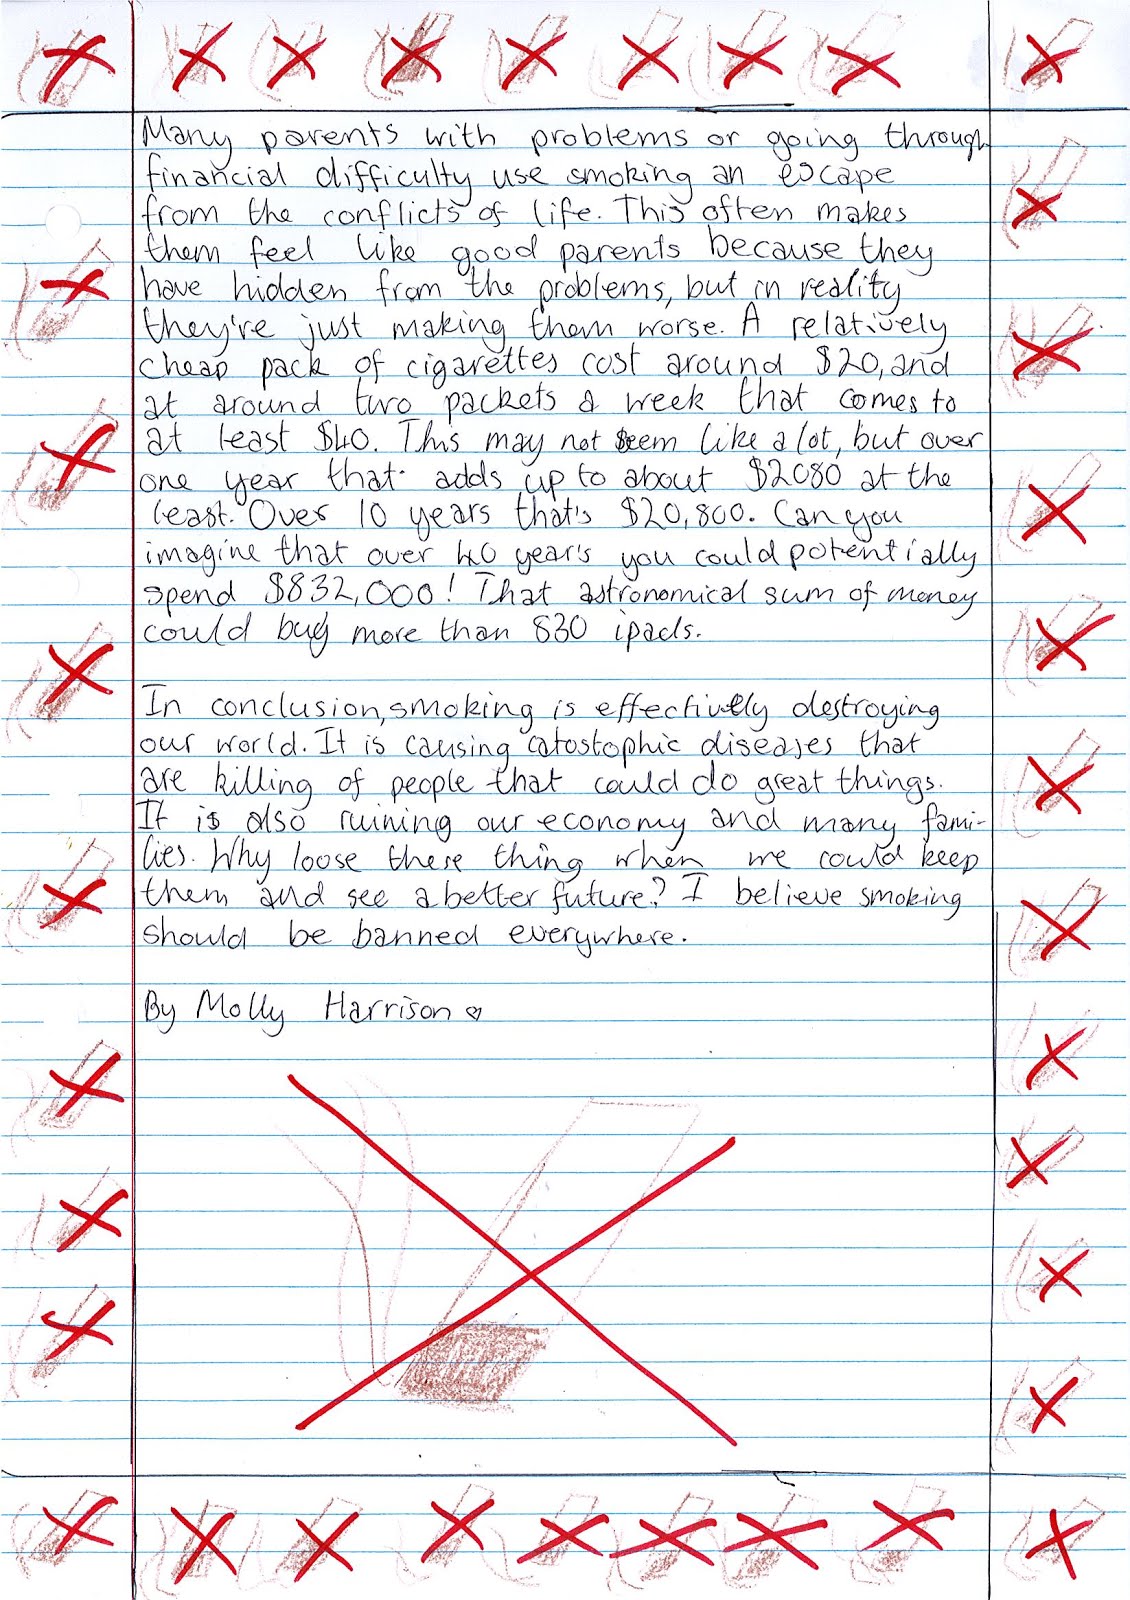 Many parents with problems or going through
financial difficulty use smoking an escape
from the conflicts of life. This often makes
them feel like good parents because they
have hidden from the problems, but in reality
they're just making them worse. A relatively
cheap pack of cigarettes cost around $20, and
at around two packets a week that comes to
at least $40. This may not seem like a lot, but over
one year that adds up to about $2080 at the
least. Over 10 years that's $20,800. Can you
imagine that over 40 year's you could potentially
spend $832,000! That astronomical sum of money
could buy more than 830 ipads.
In conclusion, smoking is effectively destroying
our world. It is causing catostophic diseases that
are killing of people that could do great things.
It is also ruining our economy and many fami-
lies. Why loose these thing when we could keep
them and see a better future? I believe smoking
should be banned everywhere.
By Molly Harrison ♡